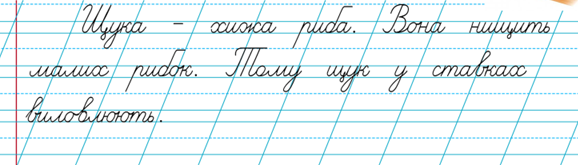 Щука - хижа риба. Вона нищить
малих рибок. Тому щук у ставках
виловлюють.